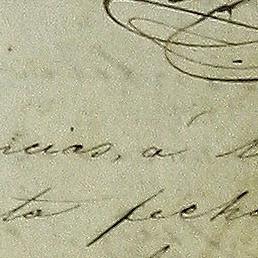 ncias, á
ta fecha